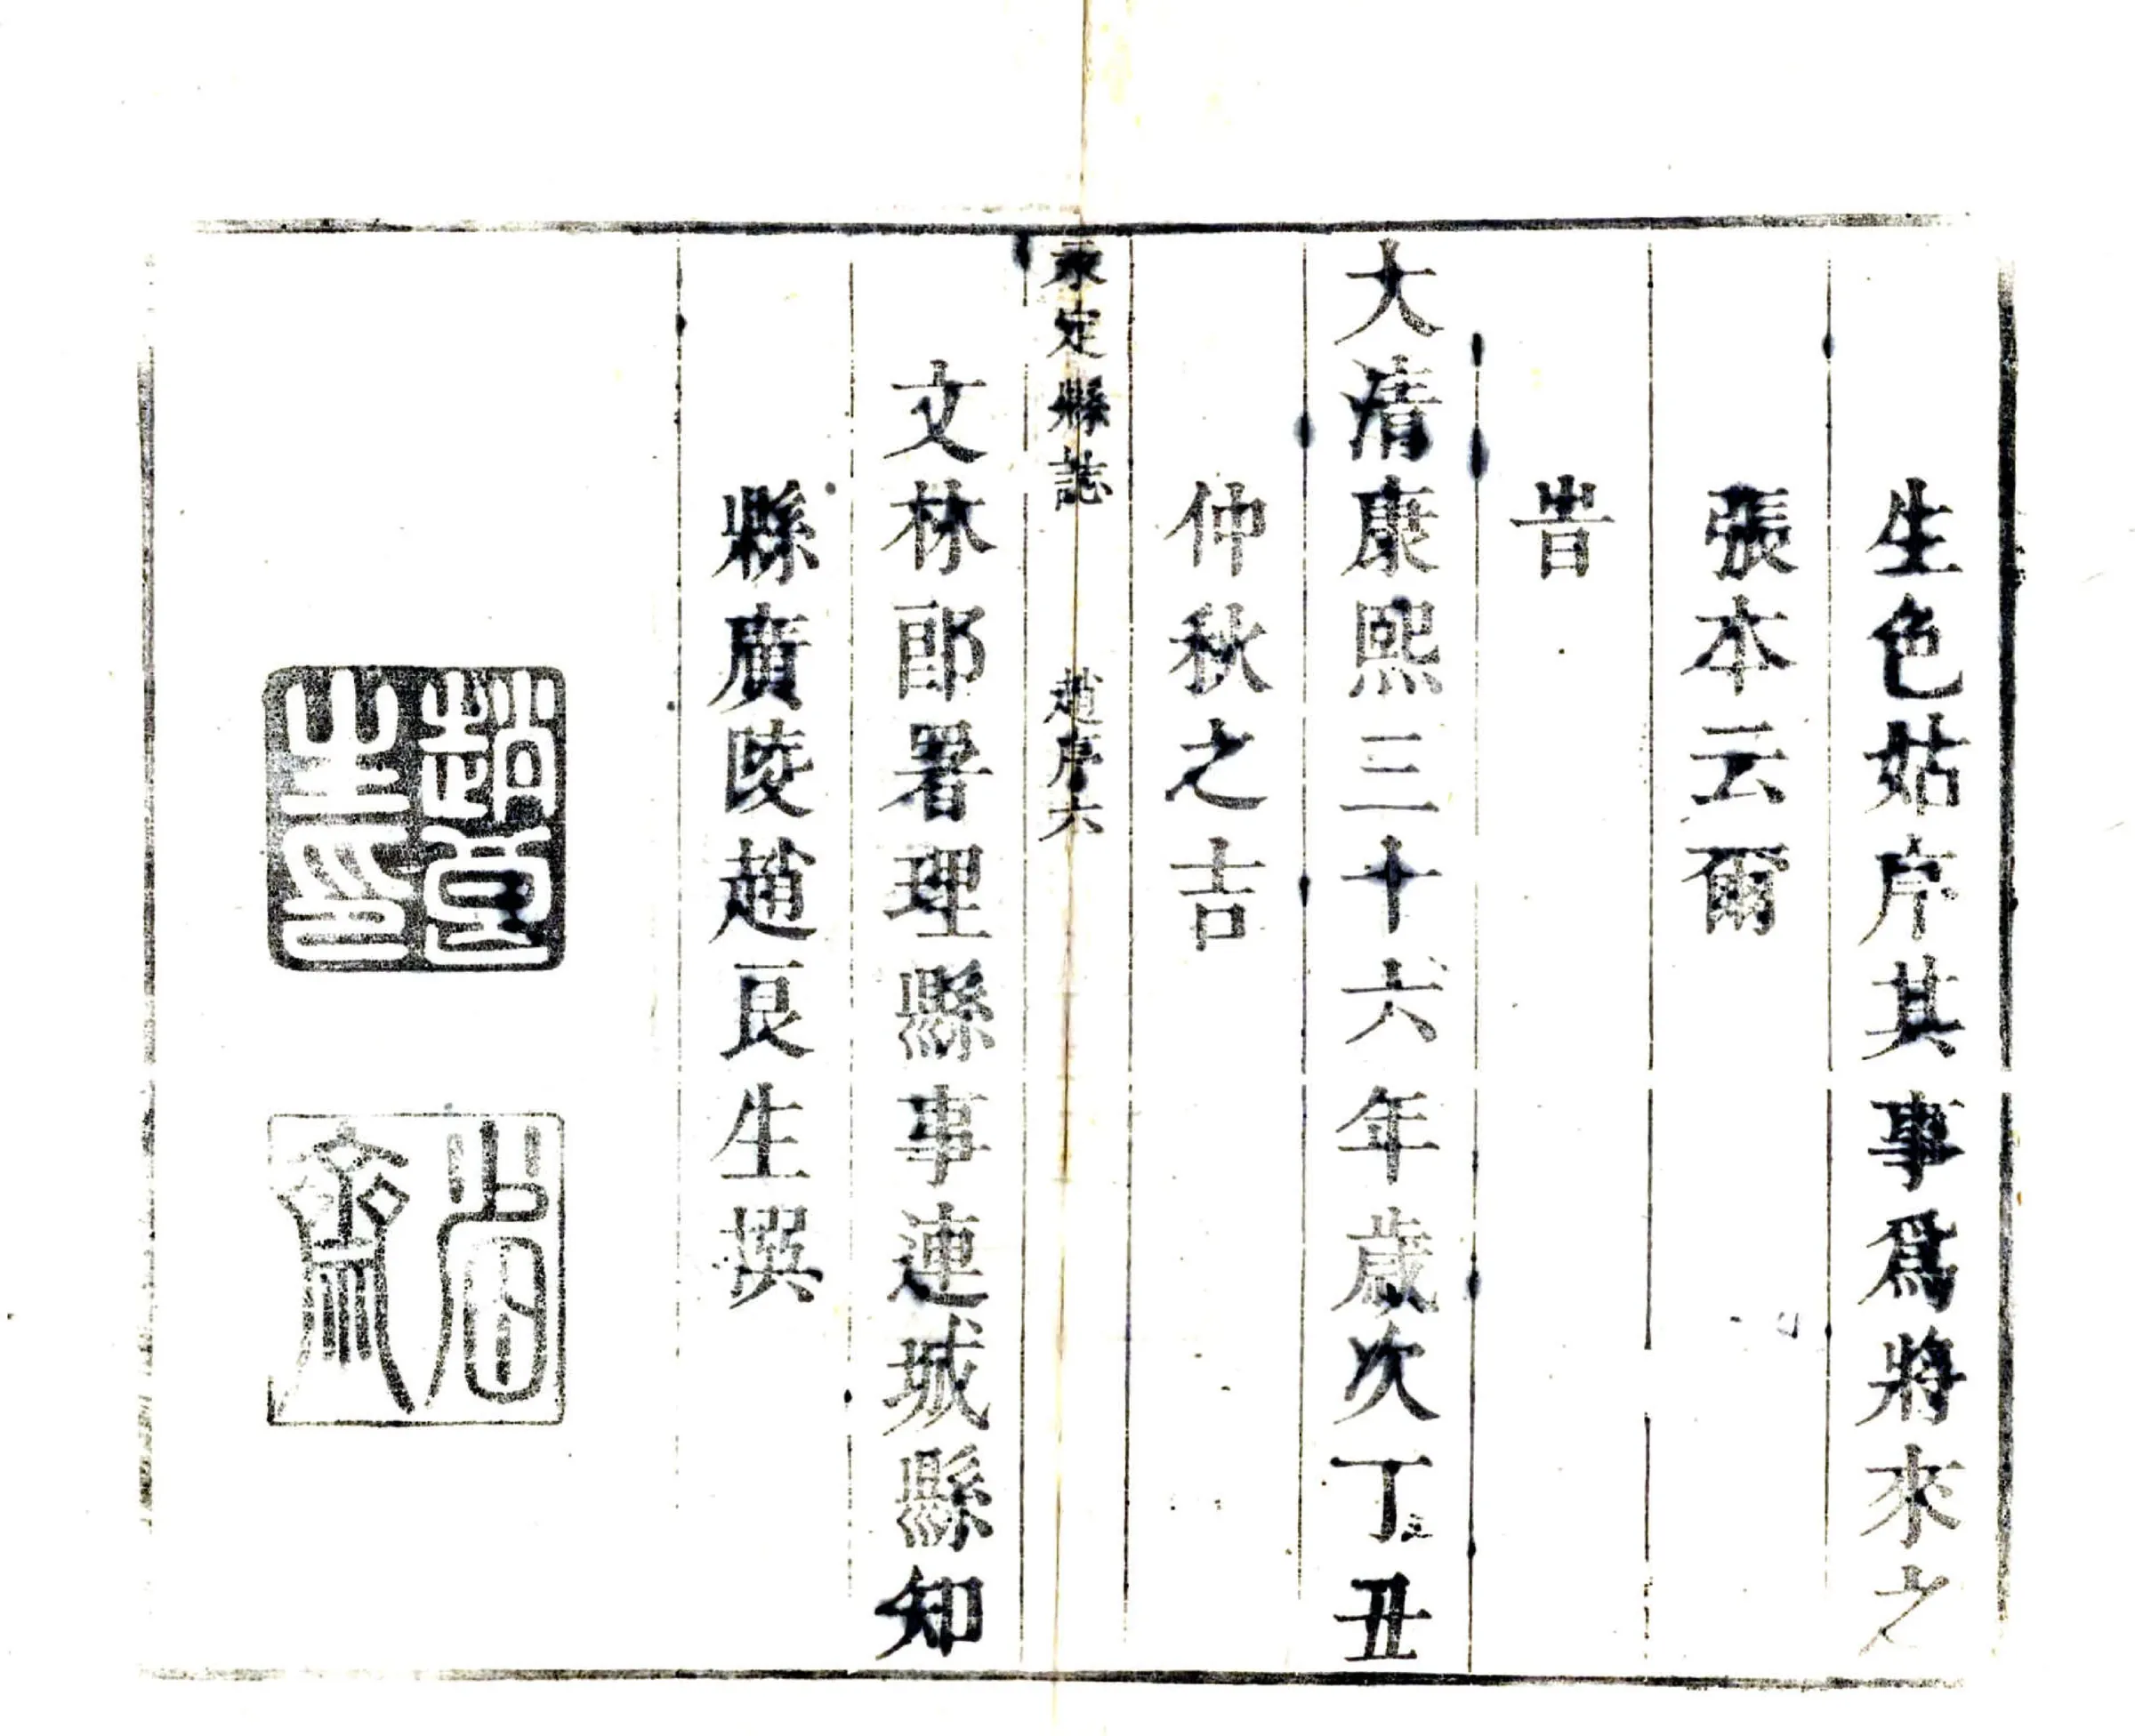 生色姑序其事爲將來之
張本云爾
旹
大淸康熙三十六年歲次丁丑
仲秋之吉
永定縣誌 趙序六
文林郎署理縣事連城縣知
縣廣陵趙良生撰
趙良生印